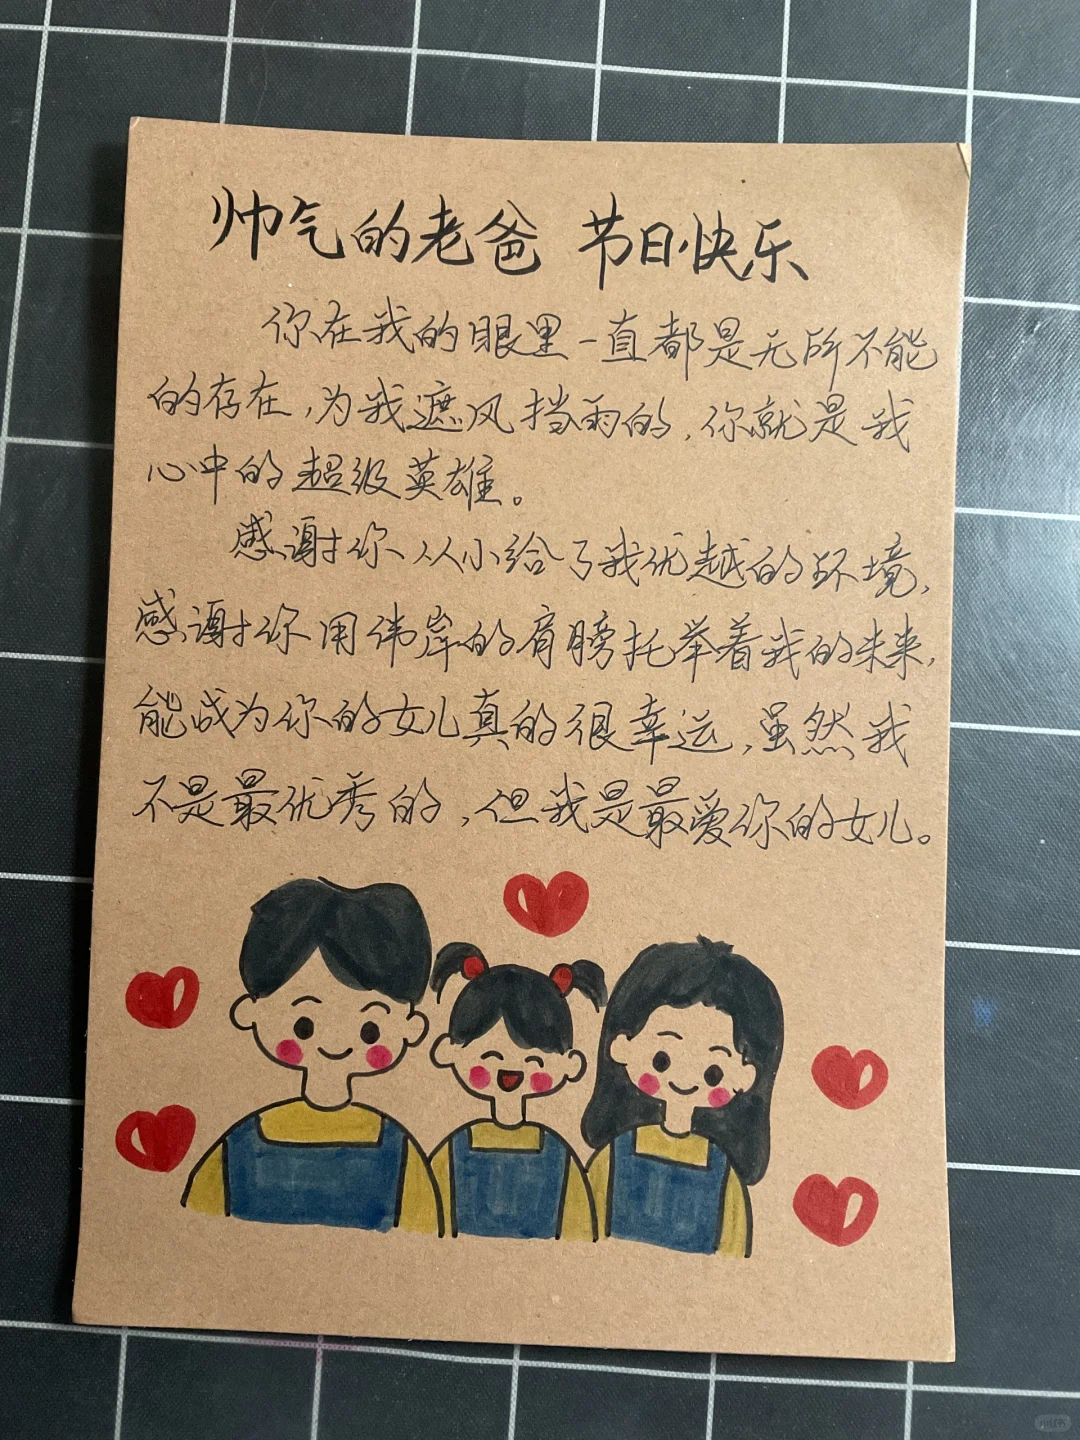 帅气的老爸 节日快乐
你在我的眼里一直都是无所不能
的存在,为我遮风挡雨的,你就是我
心中的超级英雄。
感谢你从小给了我优越的环境,
感谢你用伟岸的肩膀托举着我的未来,
能成为你的女儿真的很幸运,虽然我
不是最优秀的,但我是最爱你的女儿。
小红书